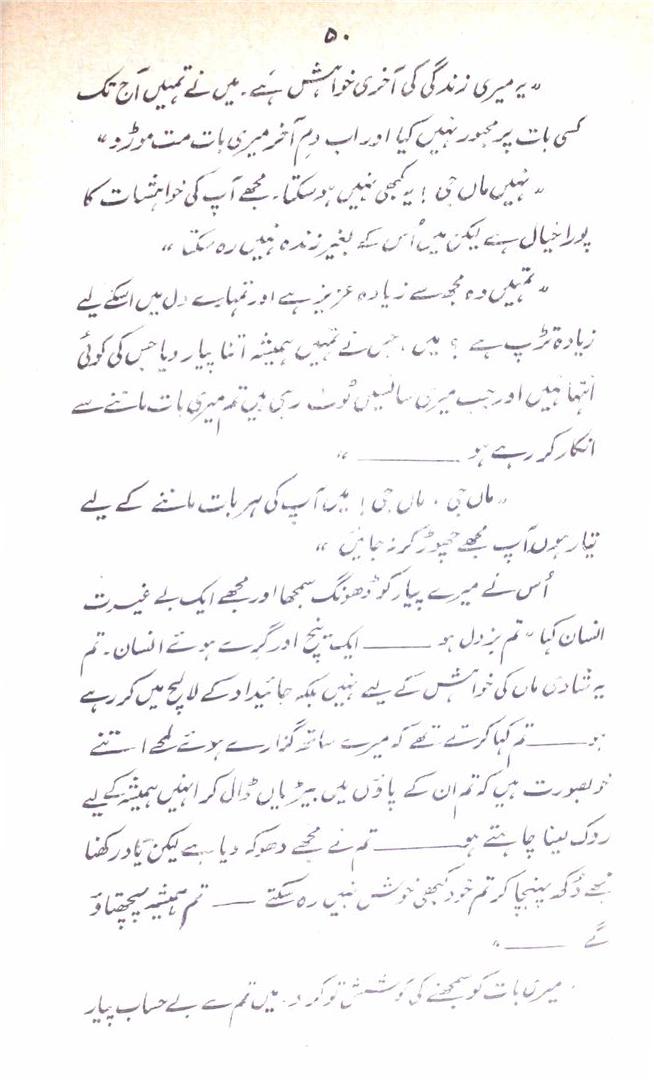 ۵۰
"یہ میری زندگی کی آخری خواہش ہے۔ میں نے تمہیں آج تک
کسی بات پر مجبور نہیں کیا اور اب دمِ آخر میری بات مت موڑو"
"نہیں ماں جی! یہ کبھی نہیں ہو سکتا۔ مجھے آپ کی خواہشات کا
پورا خیال ہے لیکن میں اُس کے بغیر زندہ نہیں رہ سکتا"
"تمہیں وہ مجھ سے زیادہ عزیز ہے اور تمہارے دل میں اسکے لیے
زیادہ تڑپ ہے؟ میں، جس نے تمہیں ہمیشہ اتنا پیار دیا جس کی کوئی
انتہا نہیں اور جب میری سانسیں ٹوٹ رہی ہیں تم میری بات ماننے سے
انکار کر رہے ہو ______"
"ماں جی، ماں جی! میں آپ کی ہر بات ماننے کے لیے
تیار ہوں آپ مجھے چھوڑ کر نہ جائیں"
اُس نے میرے پیار کو ڈھونگ سمجھا اور مجھے ایک بے غیرت
انسان کہا "تم بزدل ہو ____ ایک نیچ اور گرے ہوئے انسان۔ تم
یہ شادی ماں کی خواہش کے لیے نہیں بلکہ جائیداد کے لالچ میں کر رہے
ہو ____ تم کہا کرتے تھے کہ میرے ساتھ گزارے ہوئے لمحے اتنے
خوبصورت ہیں کہ تم ان کے پاؤں میں بیڑیاں ڈال کر انہیں ہمیشہ کے لیے
روک لینا چاہتے ہو ______ تم نے مجھے دھوکہ دیا ہے لیکن یاد رکھنا
مجھے دُکھ پہنچا کر تم خود کبھی خوش نہیں رہ سکتے ___ تم ہمیشہ پچھتاؤ
گے ____"
"میری بات کو سمجھنے کی کوشش تو کرو۔ میں تم سے بے حساب پیار